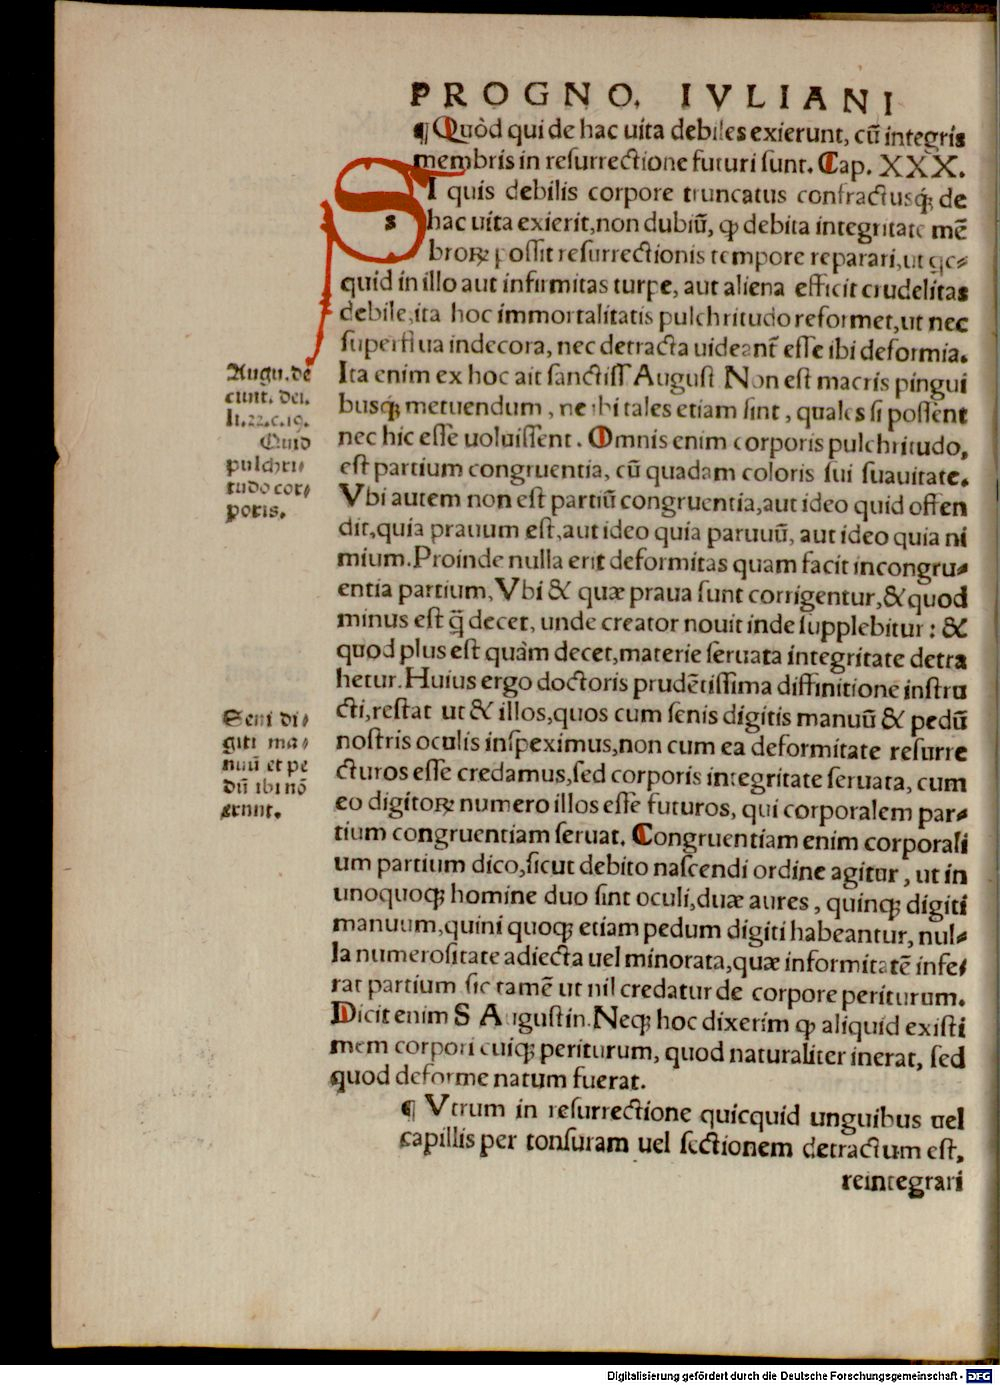 PROGNO. IVLIANI
¶ Quòd qui de hac uita debiles exierunt, cũ integris
membris in resurrectione futuri sunt. Cap. XXX.
SI quis debilis corpore truncatus confractusq́; de
hac uita exierit, non dubiũ, ꝙ debita integritate mẽ
broꝝ possit resurrectionis tempore reparari, ut qc⸗
quid in illo aut infirmitas turpe, aut aliena efficit crudelitas
debile, ita hoc immortalitatis pulchritudo reformet, ut nec
superflua indecora, nec detracta uideant̃ esse ibi deformia.
Augu. de
ciuit. dei.
li.22.c.19.
Quid
pulchri⸗
tudo cor⸗
poris.
Ita enim ex hoc ait sanctiss August Non est macris pingui
busq́; metuendum, ne ibi tales etiam sint, quales si possent
nec hic esse uoluissent. Omnis enim corporis pulchritudo,
est partium congruentia, cũ quadam coloris sui suauitate.
Vbi autem non est partiũ congruentia, aut ideo quid offen
dit, quia prauum est, aut ideo quia paruuũ, aut ideo quia ni
mium. Proinde nulla erit deformitas quam facit incongru⸗
entia partium, Vbi & quæ praua sunt corrigentur, & quod
minus est q̃ decet, unde creator nouit inde supplebitur: &
quod plus est quàm decet, materie seruata integritate detra
hetur. Huius ergo doctoris prudẽtissima diffinitione instru
Seni di⸗
giti ma⸗
nuũ et pe
dũ ibi nõ
erunt.
cti, restat ut & illos, quos cum senis digitis manuũ & pedũ
nostris oculis inspeximus, non cum ea deformitate resurre
cturos esse credamus, sed corporis integritate seruata, cum
eo digitoꝝ numero illos esse futuros, qui corporalem par⸗
tium congruentiam seruat. Congruentiam enim corporali
um partium dico, sicut debito nascendi ordine agitur, ut in
unoquoq; homine duo sint oculi, duæ aures, quinq; digiti
manuum, quini quoq; etiam pedum digiti habeantur, nul⸗
la numerositate adiecta uel minorata, quæ informitatẽ infe⸗
rat partium sic tamẽ ut nil credatur de corpore periturum.
Dicit enim S Augustin. Neq; hoc dixerim ꝙ aliquid existi
mem corpori cuiq; periturum, quod naturaliter inerat, sed
quod deforme natum fuerat.
¶ Vtrum in resurrectione quicquid unguibus uel
capillis per tonsuram uel sectionem detractum est,
reintegrari
Digitalisierung gefördert durch die Deutsche Forschungsgemeinschaft - DFG